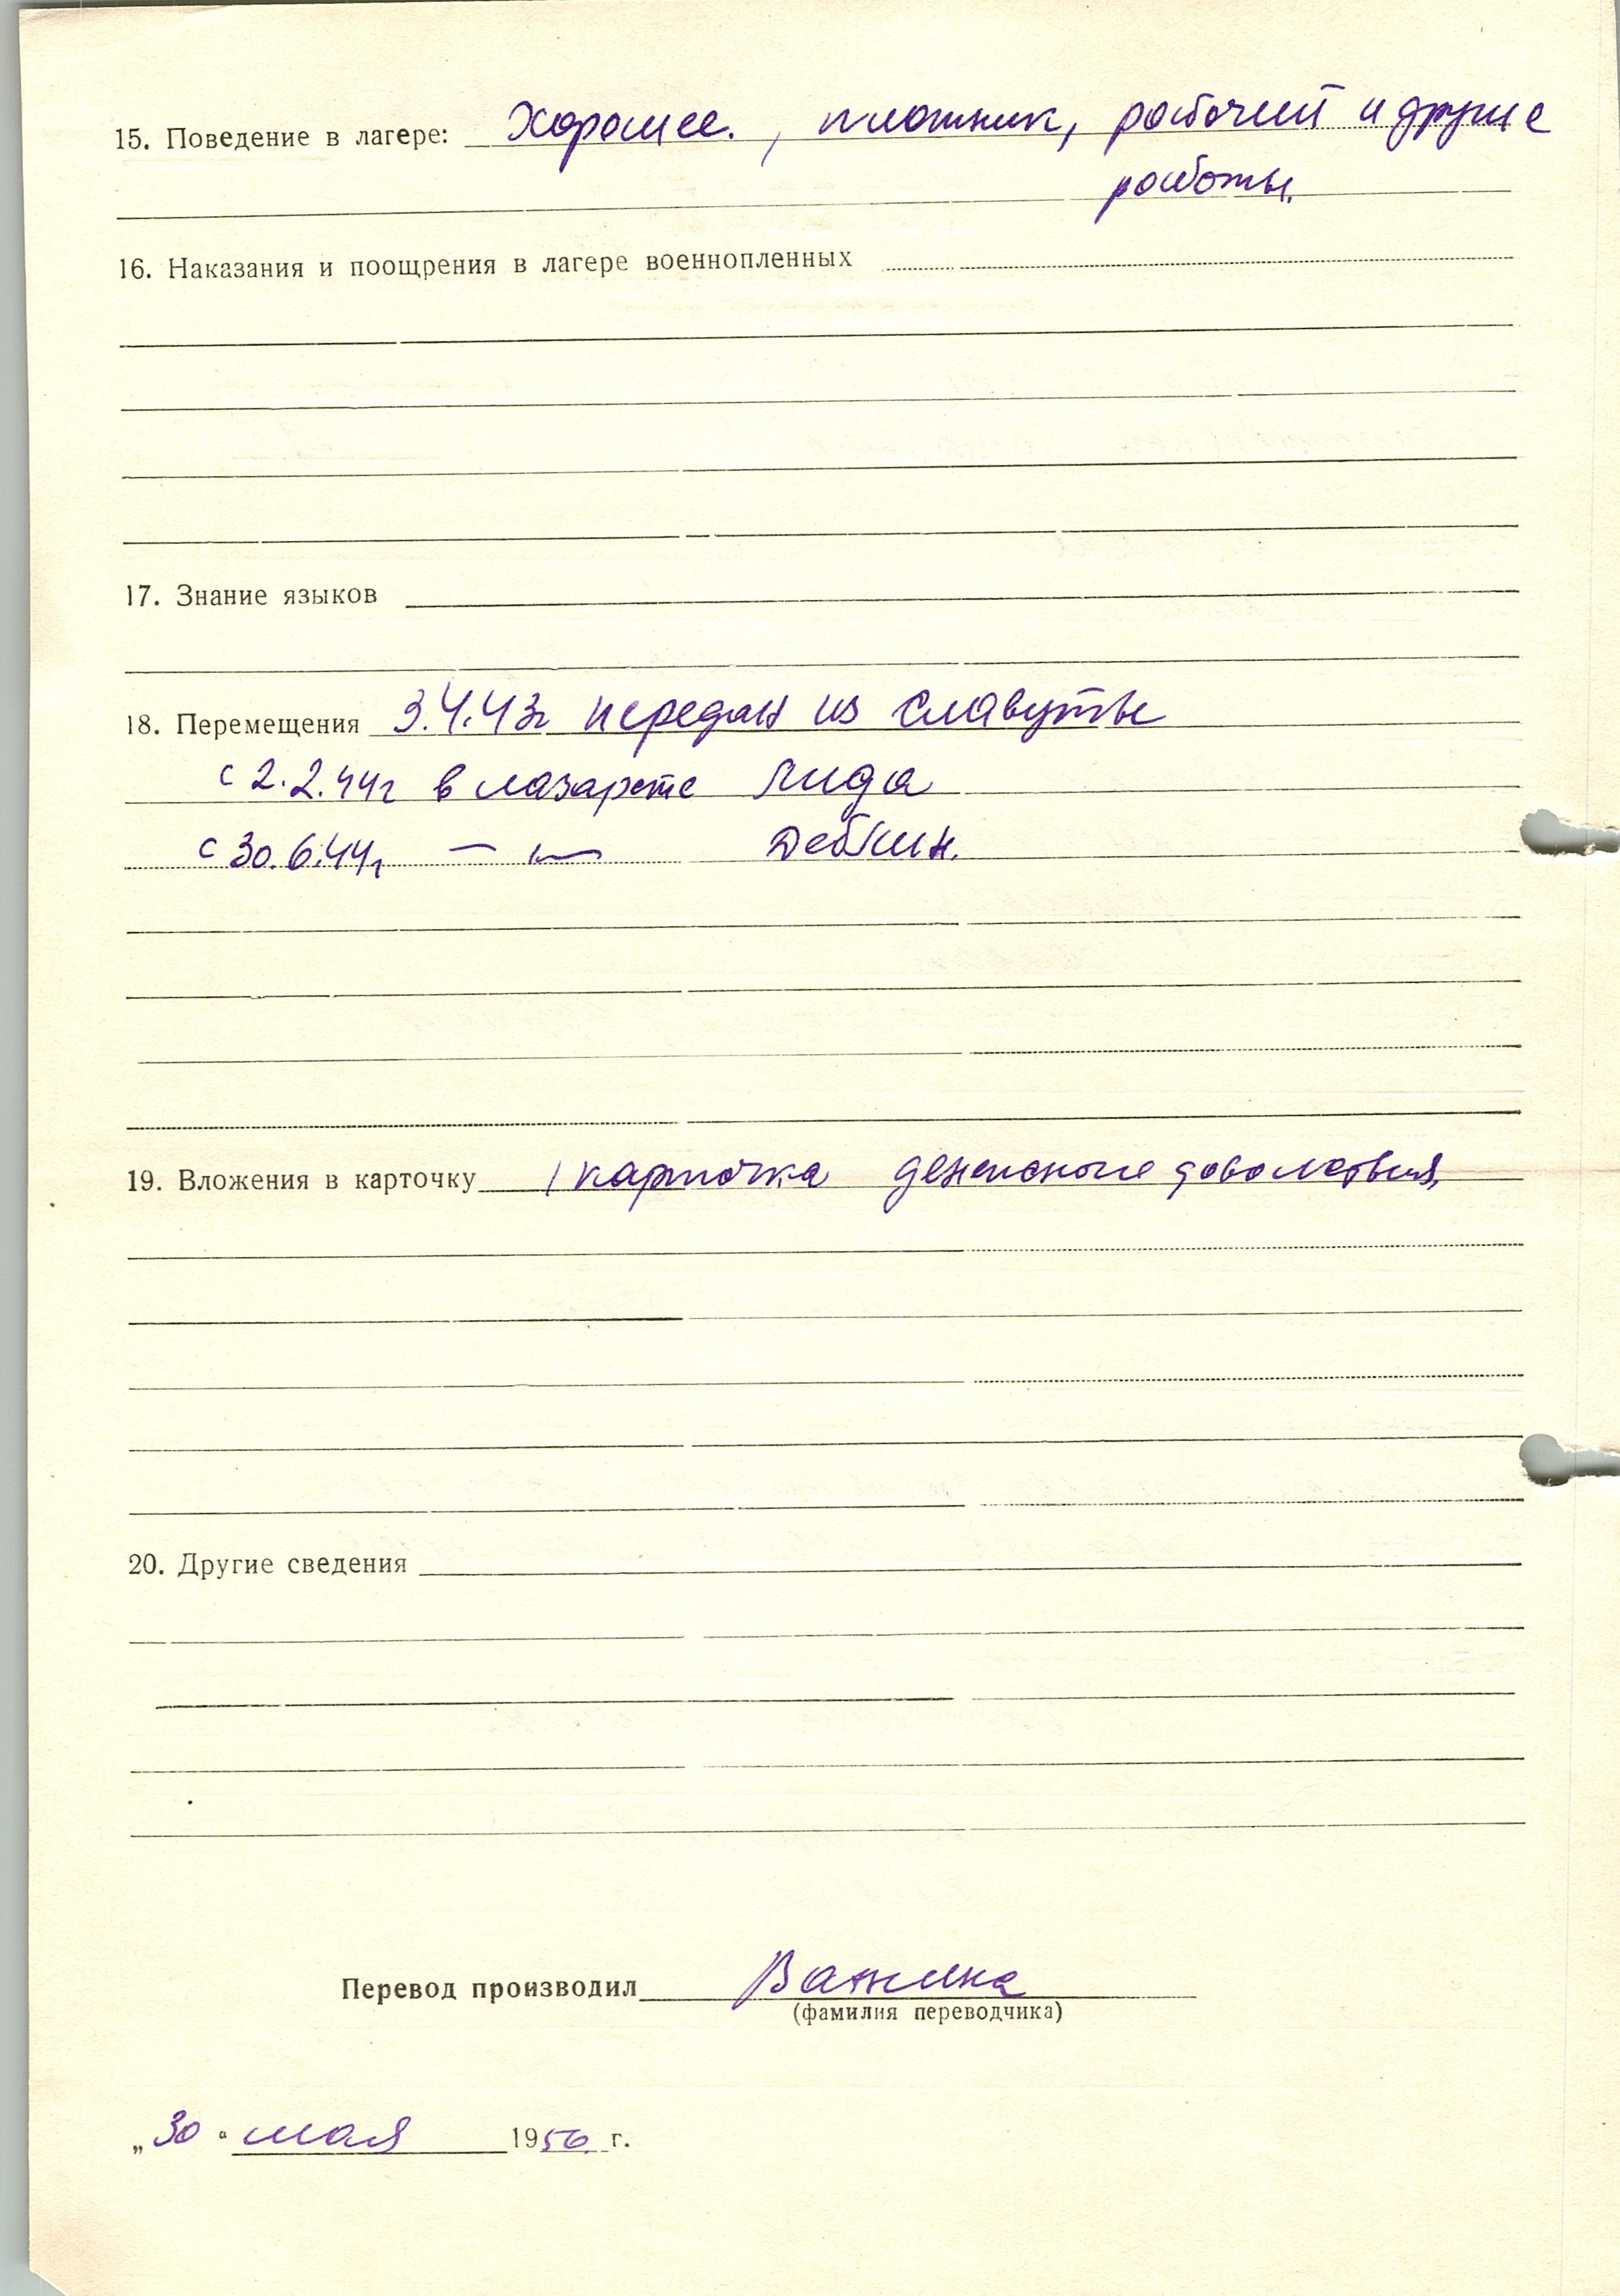 15. Поведение в лагере: Хорошее. , плотник, рабочий и другие
работы.
16. Наказания и поощрения в лагере военнопленных
17. Знание языков
18. Перемещения 3.4.43г передан из Славуты
с 2.2.44г в лазарете Лида
с 30.6.44г — " — Деблин.
19. Вложения в карточку 1 карточка денежного довольствия,
20. Другие сведения
Перевод производил
(фамилия переводчика)
„30“ мая 1956 г.